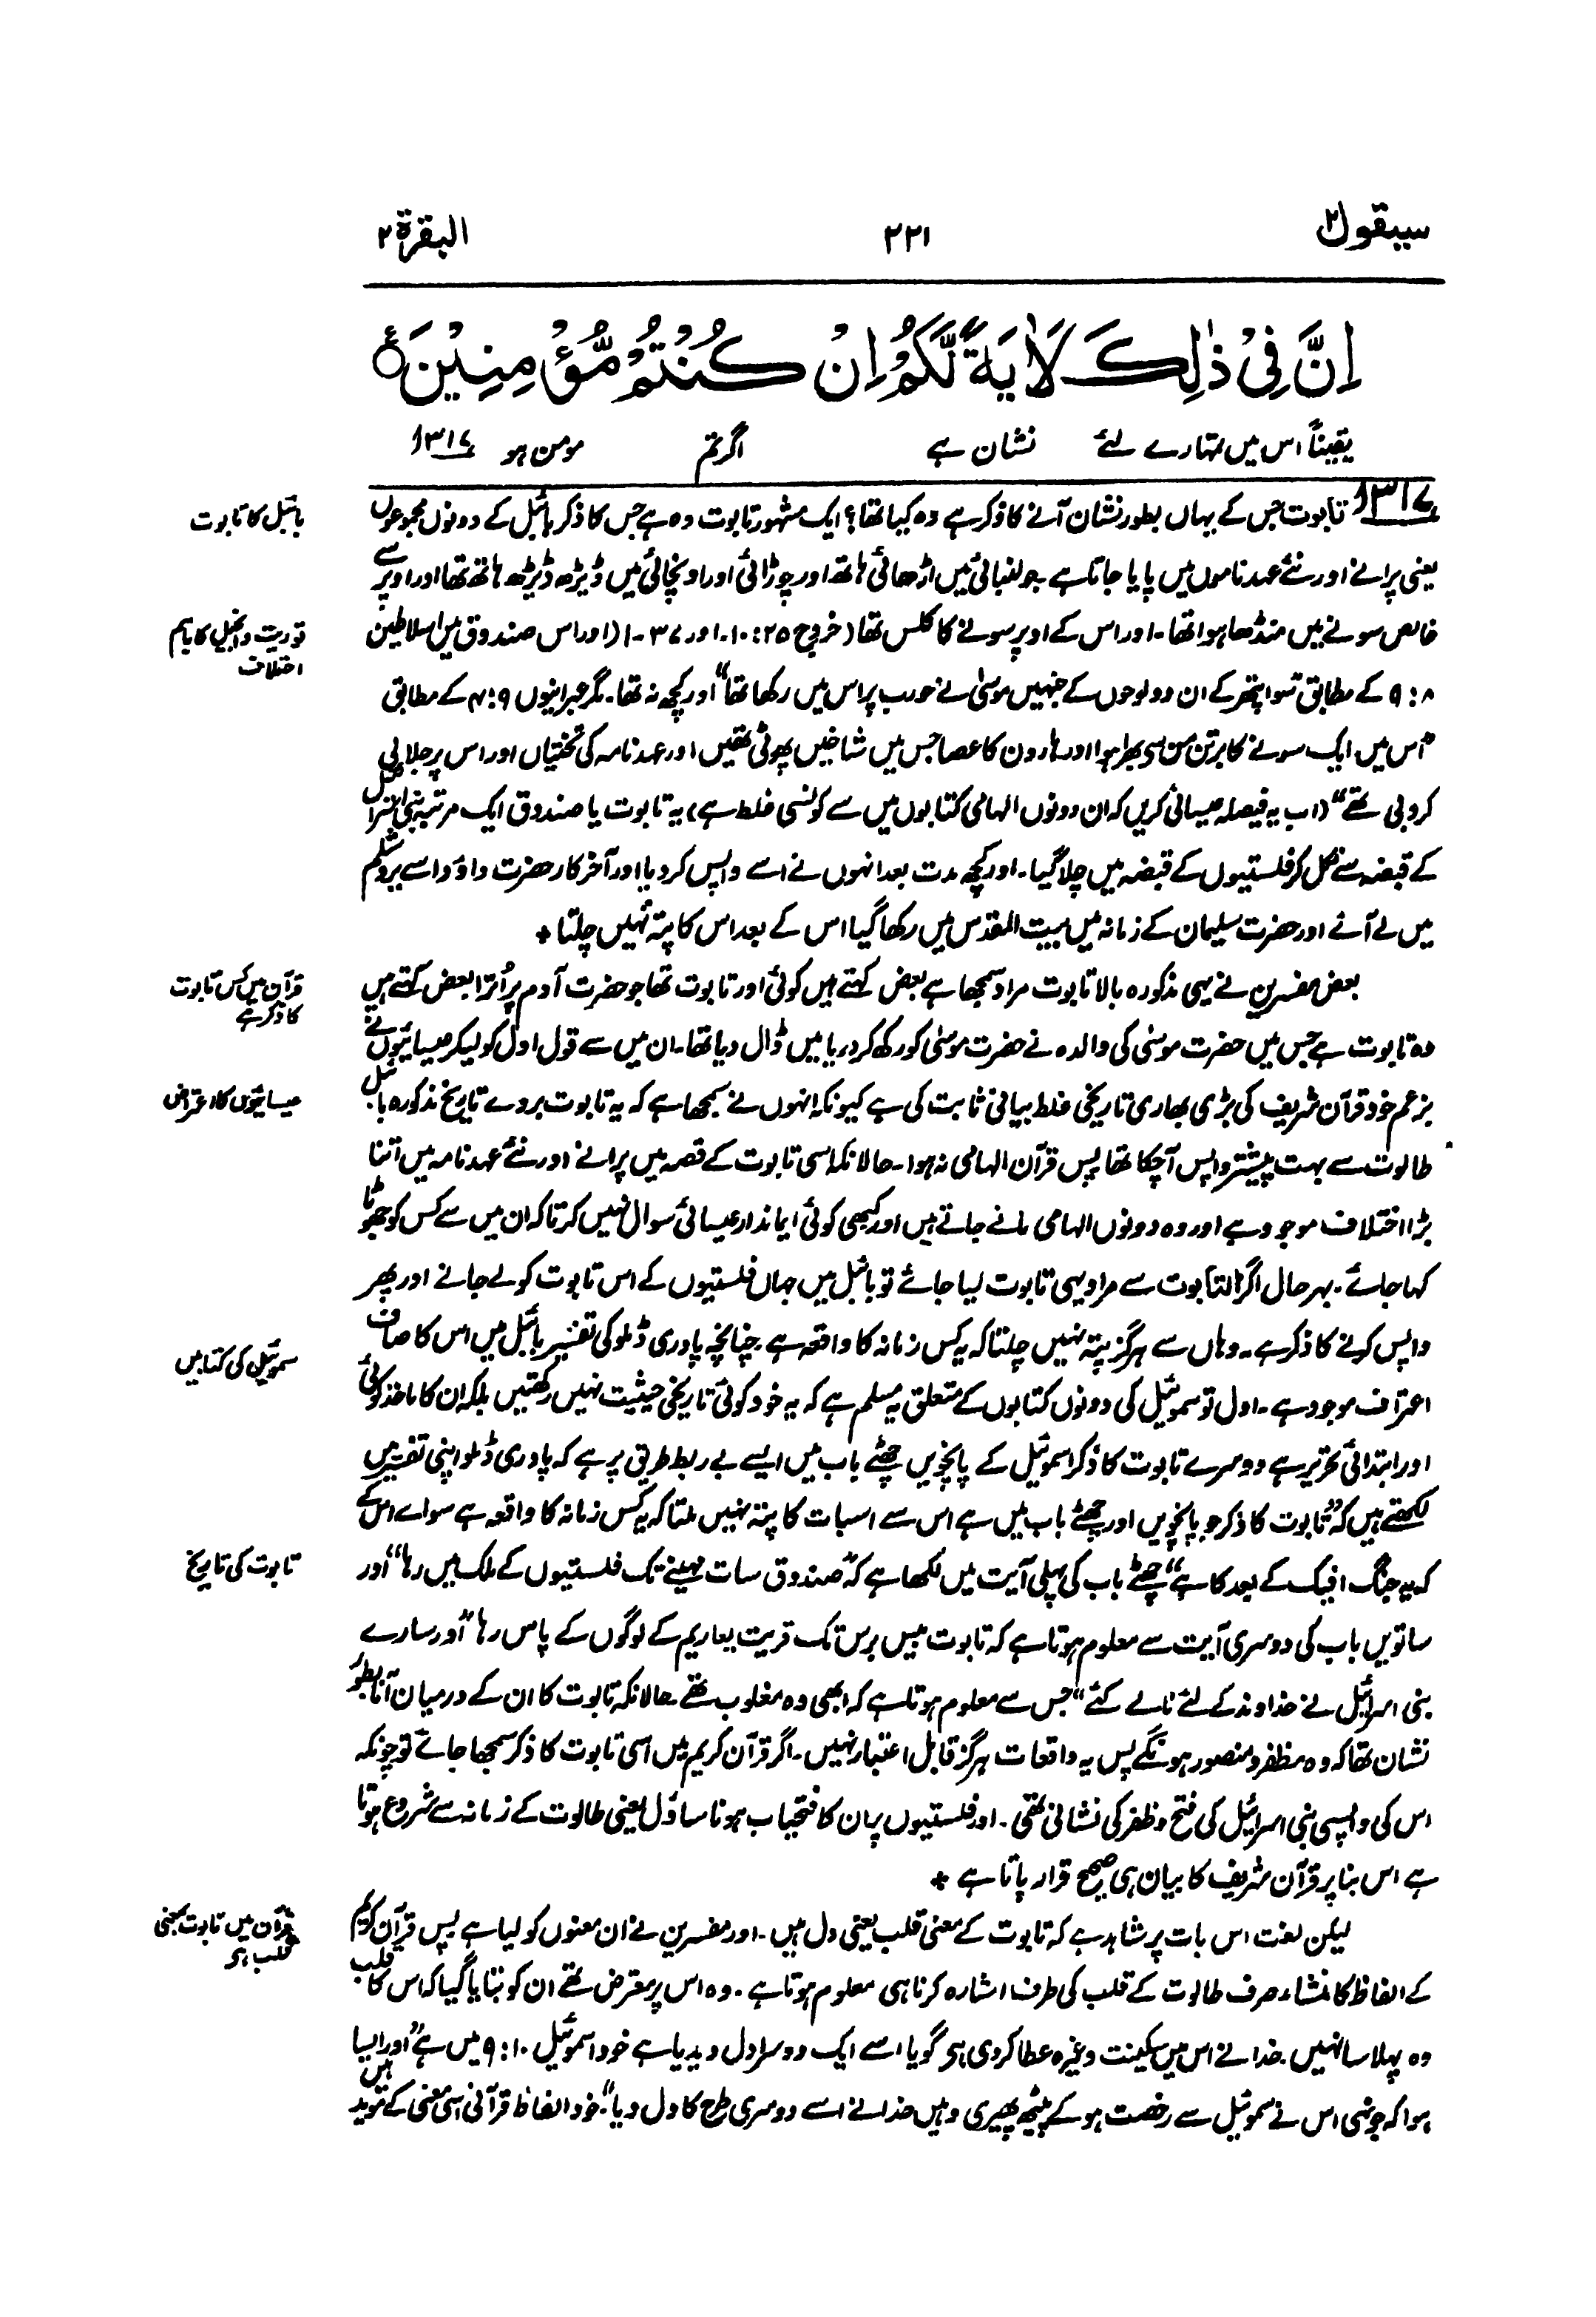 سیقول ۲
۲۲۱
البقرة ۲
اِنَّ فِیْ ذٰلِكَ لَاٰیَةً لَّكُمْ اِنْ كُنْتُمْ مُّؤْمِنِیْنَ ۝ع
یقیناً اس میں تمہارے لئے نشان ہے اگر تم مومن ہو ۱۳۱۷
۱۳۱۷ تابوت جس کے یہاں بطور نشان آنے کا ذکر ہے وہ کیا تھا؟ ایک مشہور تابوت وہ ہے جس کا ذکر بائبل کے دونوں مجموعوں
بائبل کا تابوت
یعنی پرانے اور نئے عہدناموں میں پایا جاتا ہے۔ جو لنبائی میں اڑھائی ہاتھ اور چوڑائی اور اونچائی میں ڈیڑھ ڈیڑھ ہاتھ تھا اور اوپر سے
خالص سونے میں منڈھا ہوا تھا۔ اور اس کے اوپر سونے کا کلس تھا (خروج ۲۵:۱۰۔ اور ۳۷۔۱) اور اس صندوق میں ا سلاطین
توریت و انجیل کا باہم
اختلاف
۸:۹ کے مطابق "سوا پتھر کے ان دو لوحوں کے جنہیں موسیٰ نے حورب پر اس میں رکھا تھا" اور کچھ نہ تھا۔ مگر عبرانیوں ۹:۴ کے مطابق
"اس میں ایک سونے کا برتن من سے بھرا ہوا اور ہارون کا عصا جس میں شاخیں پھوٹی تھیں اور عہدنامہ کی تختیاں اور اس پر جلالی
کروبی تھے" (اب یہ فیصلہ عیسائی کریں کہ ان دونوں الہامی کتابوں میں سے کونسی غلط ہے) یہ تابوت یا صندوق ایک مرتبہ بنی اسرائیل
کے قبضہ سے نکل کر فلستیوں کے قبضہ میں چلا گیا۔ اور کچھ مدت بعد انہوں نے اسے واپس کر دیا اور آخر کار حضرت داؤد اسے یروشلم
میں لے آئے اور حضرت سلیمان کے زمانہ میں بیت المقدس میں رکھا گیا اس کے بعد اس کا پتہ نہیں چلتا +
بعض مفسرین نے یہی مذکورہ بالا تابوت مراد سمجھا ہے بعض کہتے ہیں کوئی اور تابوت تھا جو حضرت آدم پر اُترا بعض کہتے ہیں
قرآن میں کس تابوت
کا ذکر ہے
وہ تابوت ہے جس میں حضرت موسیٰ کی والدہ نے حضرت موسیٰ کو رکھ کر دریا میں ڈال دیا تھا۔ ان میں سے قول اول کو لیکر عیسائیوں نے
بزعم خود قرآن شریف کی بڑی بھاری تاریخی غلط بیانی ثابت کی ہے کیونکہ انہوں نے سمجھا ہے کہ یہ تابوت بروے تاریخ مذکورہ بائبل
عیسائیوں کا اعتراض
طالوت سے بہت پیشتر واپس آچکا تھا پس قرآن الہامی نہ ہوا۔ حالانکہ اسی تابوت کے قصہ میں پرانے اور نئے عہدنامہ میں اتنا
بڑا اختلاف موجود ہے اور وہ دونوں الہامی مانے جاتے ہیں اور کبھی کوئی ایماندار عیسائی سوال نہیں کرتا کہ ان میں سے کس کو جھوٹا
کہا جائے۔ بہرحال اگر التابوت سے مراد یہی تابوت لیا جائے تو بائبل میں جہاں فلستیوں کے اس تابوت کو لے جانے اور پھر
واپس کرنے کا ذکر ہے۔ وہاں سے ہرگز پتہ نہیں چلتا کہ یہ کس زمانہ کا واقعہ ہے۔ چنانچہ پادری ڈملو کی تفسیر بائبل میں اس کا صاف
سموئیل کی کتابیں
اعتراف موجود ہے۔ اول تو سموئیل کی دونوں کتابوں کے متعلق یہ مسلم ہے کہ یہ خود کوئی تاریخی حیثیت نہیں رکھتیں بلکہ ان کا ماخذ کوئی
اور ابتدائی تحریر ہے دوسرے تابوت کا ذکر ا سموئیل کے پانچویں چھٹے باب میں ایسے بے ربط طریق پر ہے کہ پادری ڈملو اپنی تفسیر میں
لکھتے ہیں کہ "تابوت کا ذکر جو پانچویں اور چھٹے باب میں ہے اس سے اسبات کا پتہ نہیں ملتا کہ یہ کس زمانہ کا واقعہ ہے سواے اس کے
کہ یہ جنگ افیک کے بعد کا ہے" چھٹے باب کی پہلی آیت میں لکھا ہے کہ "صندوق سات مہینے تک فلستیوں کے ملک میں رہا" اور
تابوت کی تاریخ
ساتویں باب کی دوسری آیت سے معلوم ہوتا ہے کہ تابوت بیس برس تک قریت یعاریم کے لوگوں کے پاس رہا "اور سارے
بنی اسرائیل نے خداوند کے لئے نالے کئے" جس سے معلوم ہوتا ہے کہ ابھی وہ مغلوب تھے۔ حالانکہ تابوت کا ان کے درمیان آنا بطور
نشان تھا کہ وہ مظفر و منصور ہونگے پس یہ واقعات ہرگز قابل اعتبار نہیں۔ اگر قرآن کریم میں اسی تابوت کا ذکر سمجھا جائے تو چونکہ
اس کی واپسی بنی اسرائیل کی فتح و ظفر کی نشانی تھی۔ اور فلستیوں پر ان کا فتحیاب ہونا ساؤل یعنی طالوت کے زمانہ سے شروع ہوتا
ہے اس بنا پر قرآن شریف کا بیان ہی صحیح قرار پاتا ہے +
لیکن لغت اس بات پر شاہد ہے کہ تابوت کے معنی قلب یعنی دل ہیں۔ اور مفسرین نے ان معنوں کو لیا ہے پس قرآن کریم
قرآن میں تابوت بمعنی
قلب ہے
کے الفاظ کا منشاء صرف طالوت کے قلب کی طرف اشارہ کرنا ہی معلوم ہوتا ہے۔ وہ اس پر معترض تھے ان کو بتایا گیا کہ اس کا قلب
وہ پہلا سا نہیں۔ خدا نے اس میں سکینت وغیرہ عطا کر دی ہے گویا اسے ایک دوسرا دل دیدیا ہے خود ا سموئیل ۹:۱۰ میں ہے "اور ایسا
ہوا کہ جونہی اس نے سموئیل سے رخصت ہو کے پیٹھ پھیری وہیں خدا نے اسے دوسری طرح کا دل دیا"۔ خود الفاظ قرآنی اسی معنی کے موید ہیں